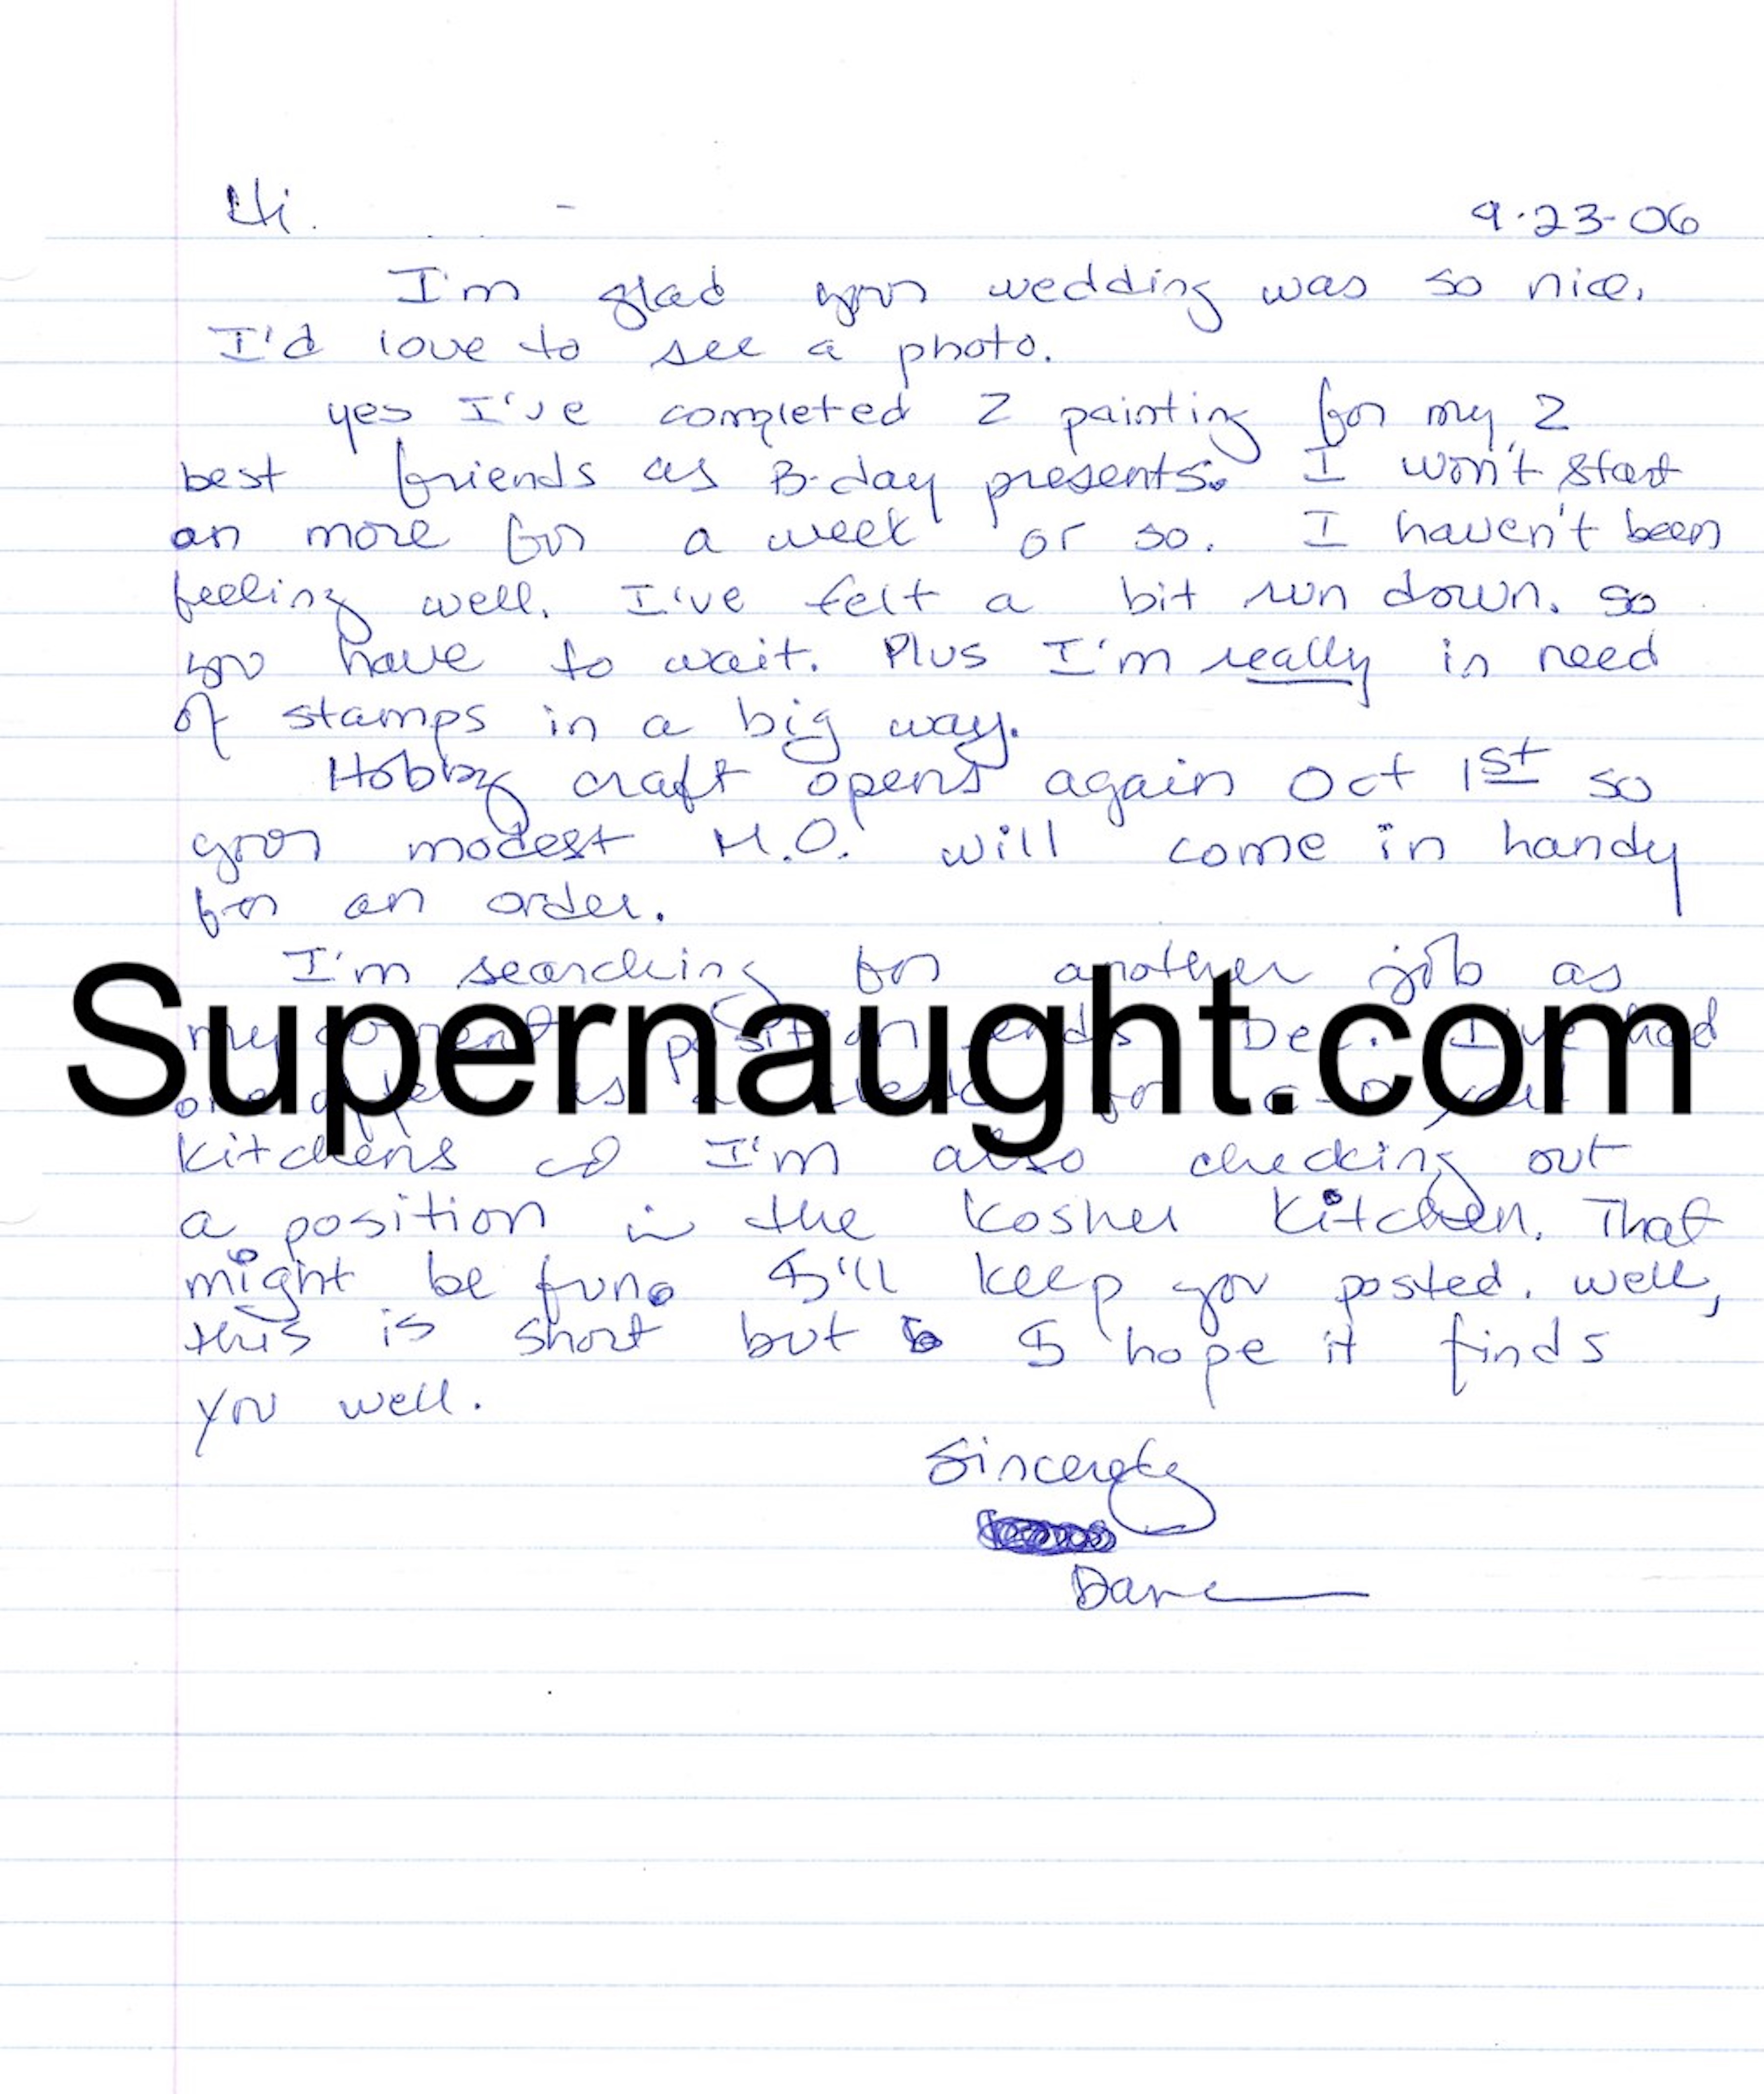 Hi. -
9-23-06
I'm glad your wedding was so nice.
I'd love to see a photo.
yes I've completed 2 painting for my 2
best friends as B-day presents. I won't start
an more for a week or so. I haven't been
feeling well. I've felt a bit run down. so
you have to wait. Plus I'm really in need
of stamps in a big way.
Hobby craft opens again Oct 1st so
your modest M.O. will come in handy
for an order.
I'm searching for another job as
my current position ends Dec. I've had
one offer as a
kitchens I'm also checking out
a position in the kosher kitchen. That
might be fun. I'll keep you posted. well,
this is short but I hope it finds
you well.
Sincerely
Dane
Supernaught.com